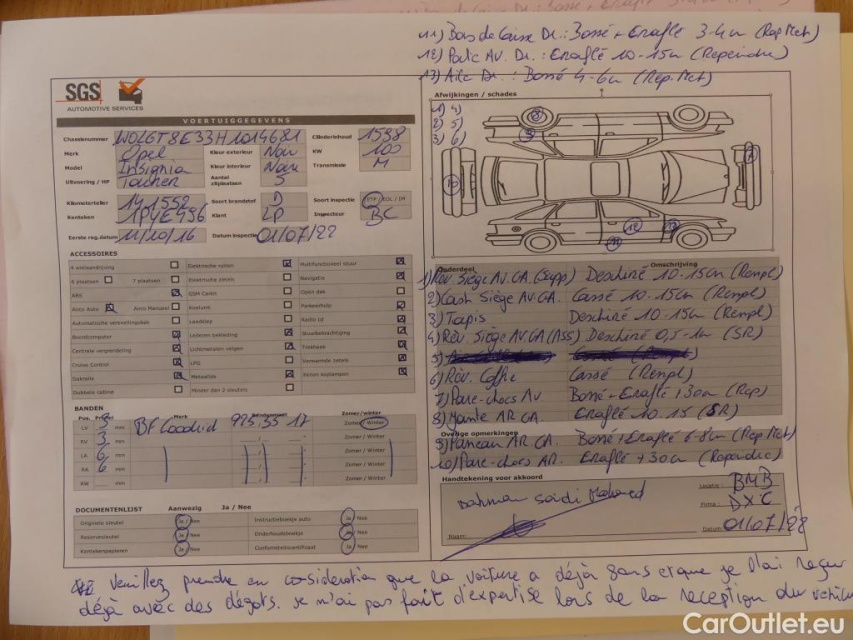 11) Bas de Caisse Dr. : Bossé + Eraflé 3-4cm (Rep Met)
12) Porte AV. Dr. : Eraflé 10-15cm (Repeindre)
13) Aile Dr. : Bossé 4-6cm (Rep. Met)
SGS
AUTOMOTIVE SERVICES
VOERTUIGGEGEVENS
Chassisnummer W0LGT8E33H1014681 Cilinderinhoud 1598
Merk Opel Kleur exterieur Noir KW 100
Model Insignia Kleur interieur Noir Transmissie M
Uitvoering / HP Tourer Aantal zitplaatsen 5
Kilometerteller 141552 Soort brandstof D Soort inspectie
Kenteken 1PYE996 Klant LP Inspecteur BC
Eerste reg.datum 11/10/16 Datum inspectie 01/07/22
ACCESSOIRES
4 wielaandrijving Elektrische ruiten Multifunctioneel stuur
5 plaatsen 7 plaatsen Elektrische zetels Navigatie
ABS GSM Carkit Open dak
Airco Auto Airco Manueel
Automatische versnellingsbak
Boordcomputer Lederen bekleding Stuurbekrachtiging
Centrale vergrendeling Lichtmetalen velgen Trekhaak
Cruise Control LPG Verwarmde zetels
Dakrails Metaallak Xenon koplampen
Dubbele cabine Minder dan 2 sleutels
BANDEN
Pos. Profiel Merk Zomer/winter
LV 3 mm BF Goodrid Zomer/Winter
RV 3 mm Zomer/Winter
LA 6 mm Zomer/Winter
RA 6 mm Zomer/Winter
RW mm Zomer/Winter
DOCUMENTENLIJST Aanwezig Ja / Nee
Originele sleutel Ja / Nee Instructieboekje auto Ja / Nee
Reservesleutel Ja / Nee Onderhoudsboekje Ja / Nee
Kentekenpapieren Ja / Nee Conformiteitscertificaat Ja / Nee
Afwijkingen / schades
1) 4)
2) 5)
3) 6)
8
9
10
7
12
13
11
Onderdeel Omschrijving
1) Rev. Siège AV. GA (Supp) Déchiré 10-15cm (Rempl)
2) Cash Siège AV. GA. Cassé 10-15cm (Rempl)
3) Tapis Déchiré 10-15cm (Rempl)
4) Rev. Siège AV. GA (Ass) Déchiré 0,5-1cm (SR)
5)
6) Rev. Coffre Cassé (Rempl)
7) Pare-chocs AV Bossé + Eraflé >30cm (Rep)
8) Jante AR GA. Eraflé 10-15 (SR)
Overige opmerkingen
9) Panneau AR GA. Bossé + Eraflé 6-8cm (Rep Met)
10) Pare-chocs AR. Eraflé +30cm (Repeindre)
Handtekening voor akkoord
Locatie : BMB
Firma : DXC
Naam: Datum 01/07/22
Veuillez prendre en considération que la voiture a déjà
déjà avec des dégâts. Je n'ai pas fait d'expertise lors de la reception du
CarOutlet.eu